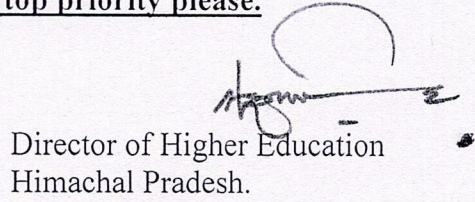 top priority please.
Director of Higher Education
Himachal Pradesh.